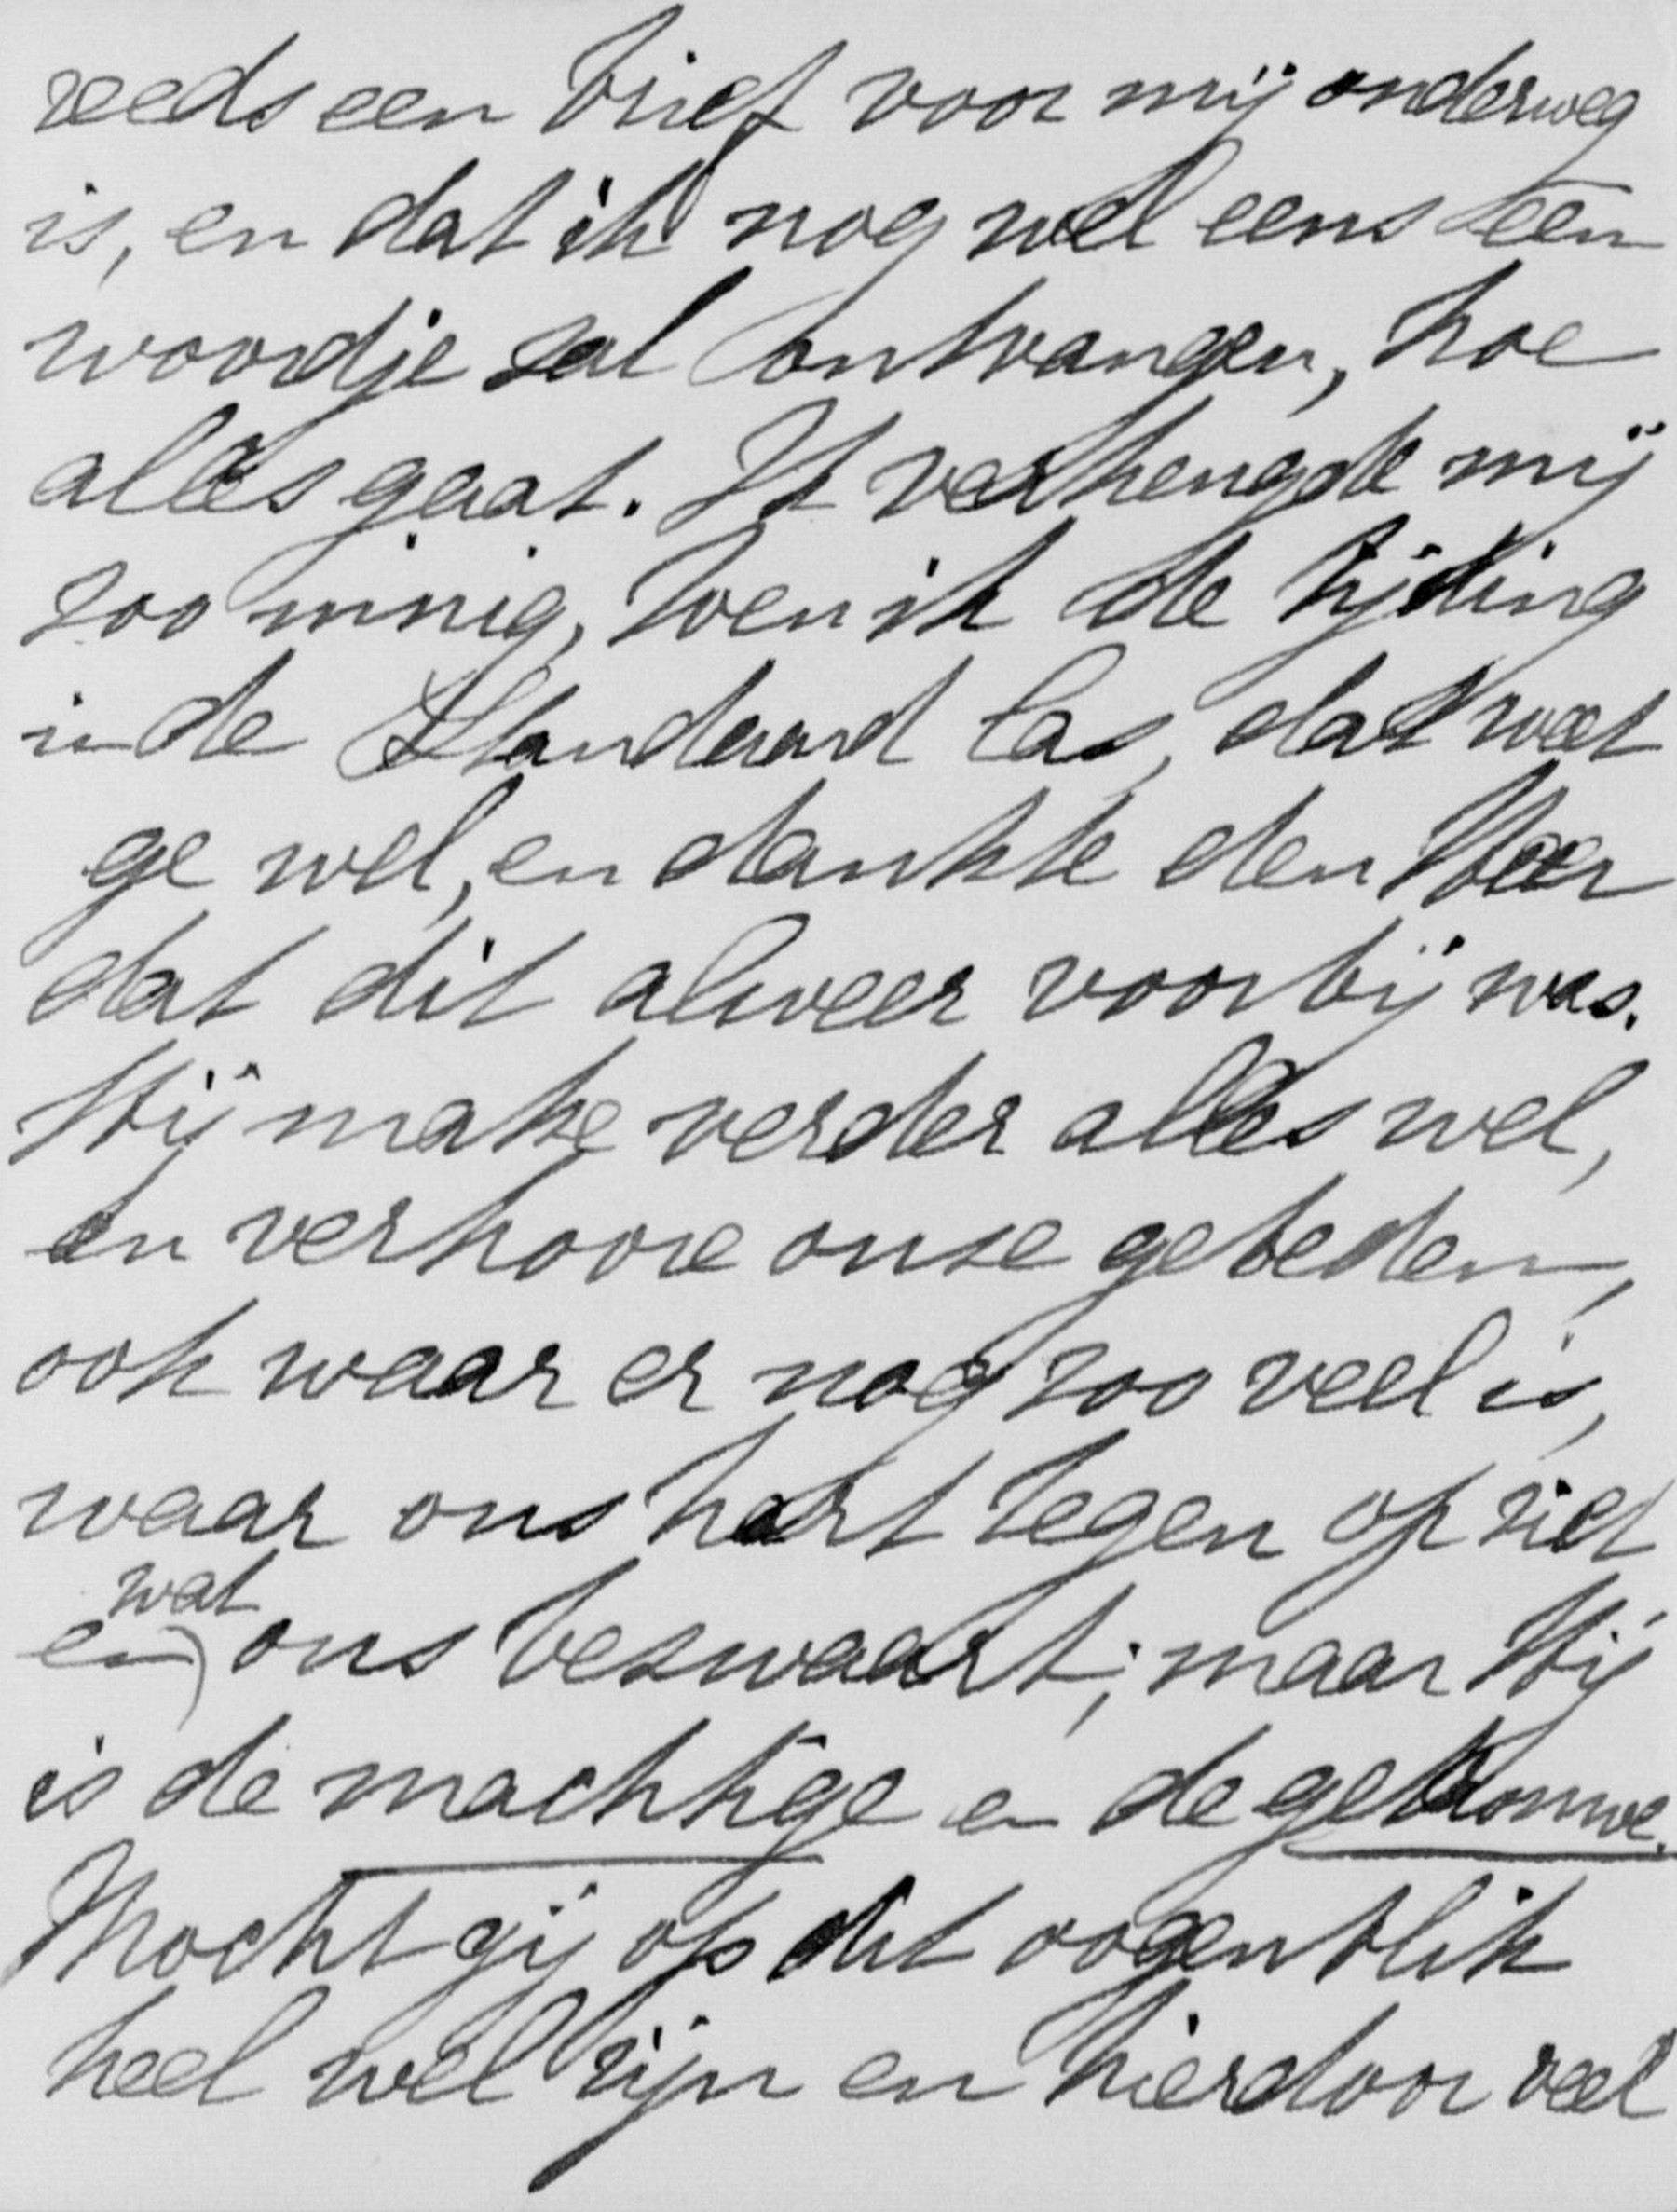 reeds een brief voor mij onderweg
is, en dat ik nog wel eens een
woordje zal ontvangen, hoe
alles gaat. Het verheugde mij
zoo innig, toen ik de tijding
in de Standaard las, dat wat
ge wel, en dankte den Heer
dat dit alweer voorbij was.
Hij make verder alles wel,
en verhoore onze gebeden,
ook waar er nog zoo veel is,
waar ons hart tegen op ziet
en wat ons bezwaart; maar Hij
is de machtige en de getrouwe.
Mocht gij op dit oogenblik
heel wel zijn en hierdoor veel